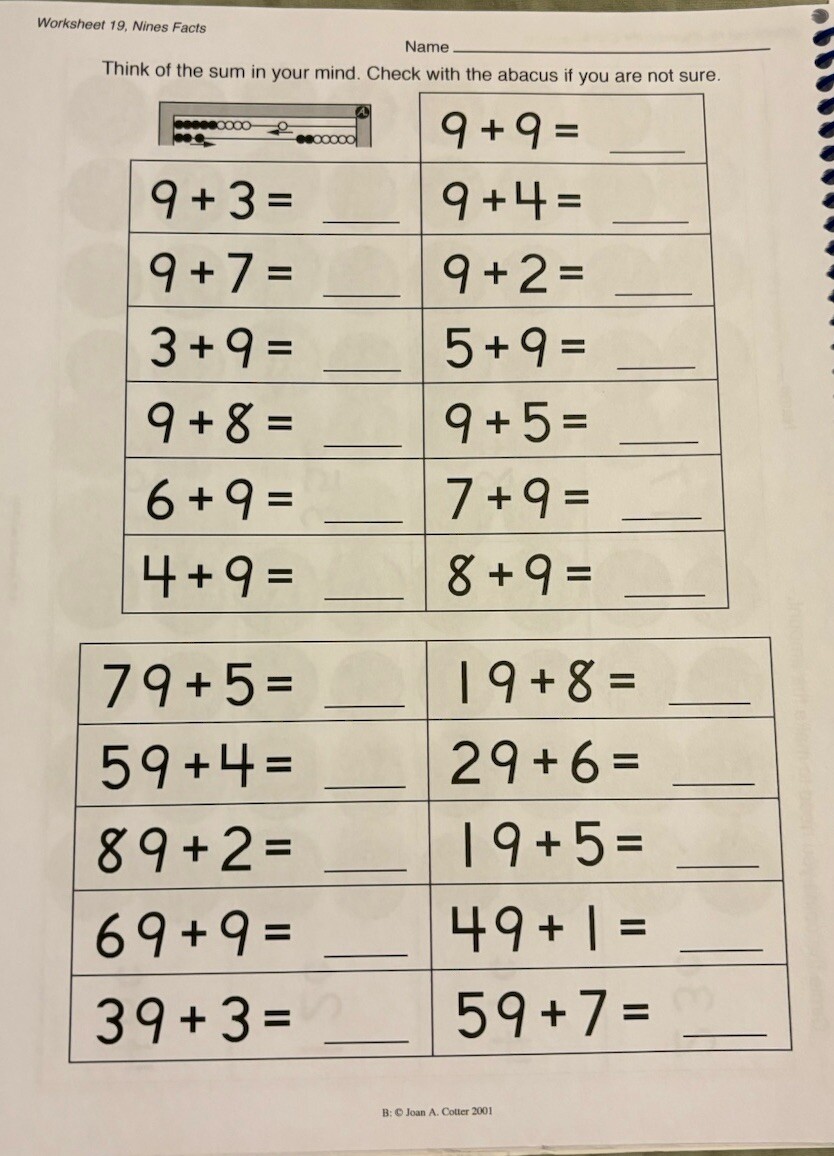 Worksheet 19, Nines Facts
Name
Think of the sum in your mind. Check with the abacus if you are not sure.
9 + 9 =
9 + 3 =
9 + 4 =
9 + 7 =
9 + 2 =
3 + 9 =
5 + 9 =
9 + 8 =
9 + 5 =
6 + 9 =
7 + 9 =
4 + 9 =
8 + 9 =
79 + 5 =
19 + 8 =
59 + 4 =
29 + 6 =
89 + 2 =
19 + 5 =
69 + 9 =
49 + 1 =
39 + 3 =
59 + 7 =
B: © Joan A. Cotter 2001